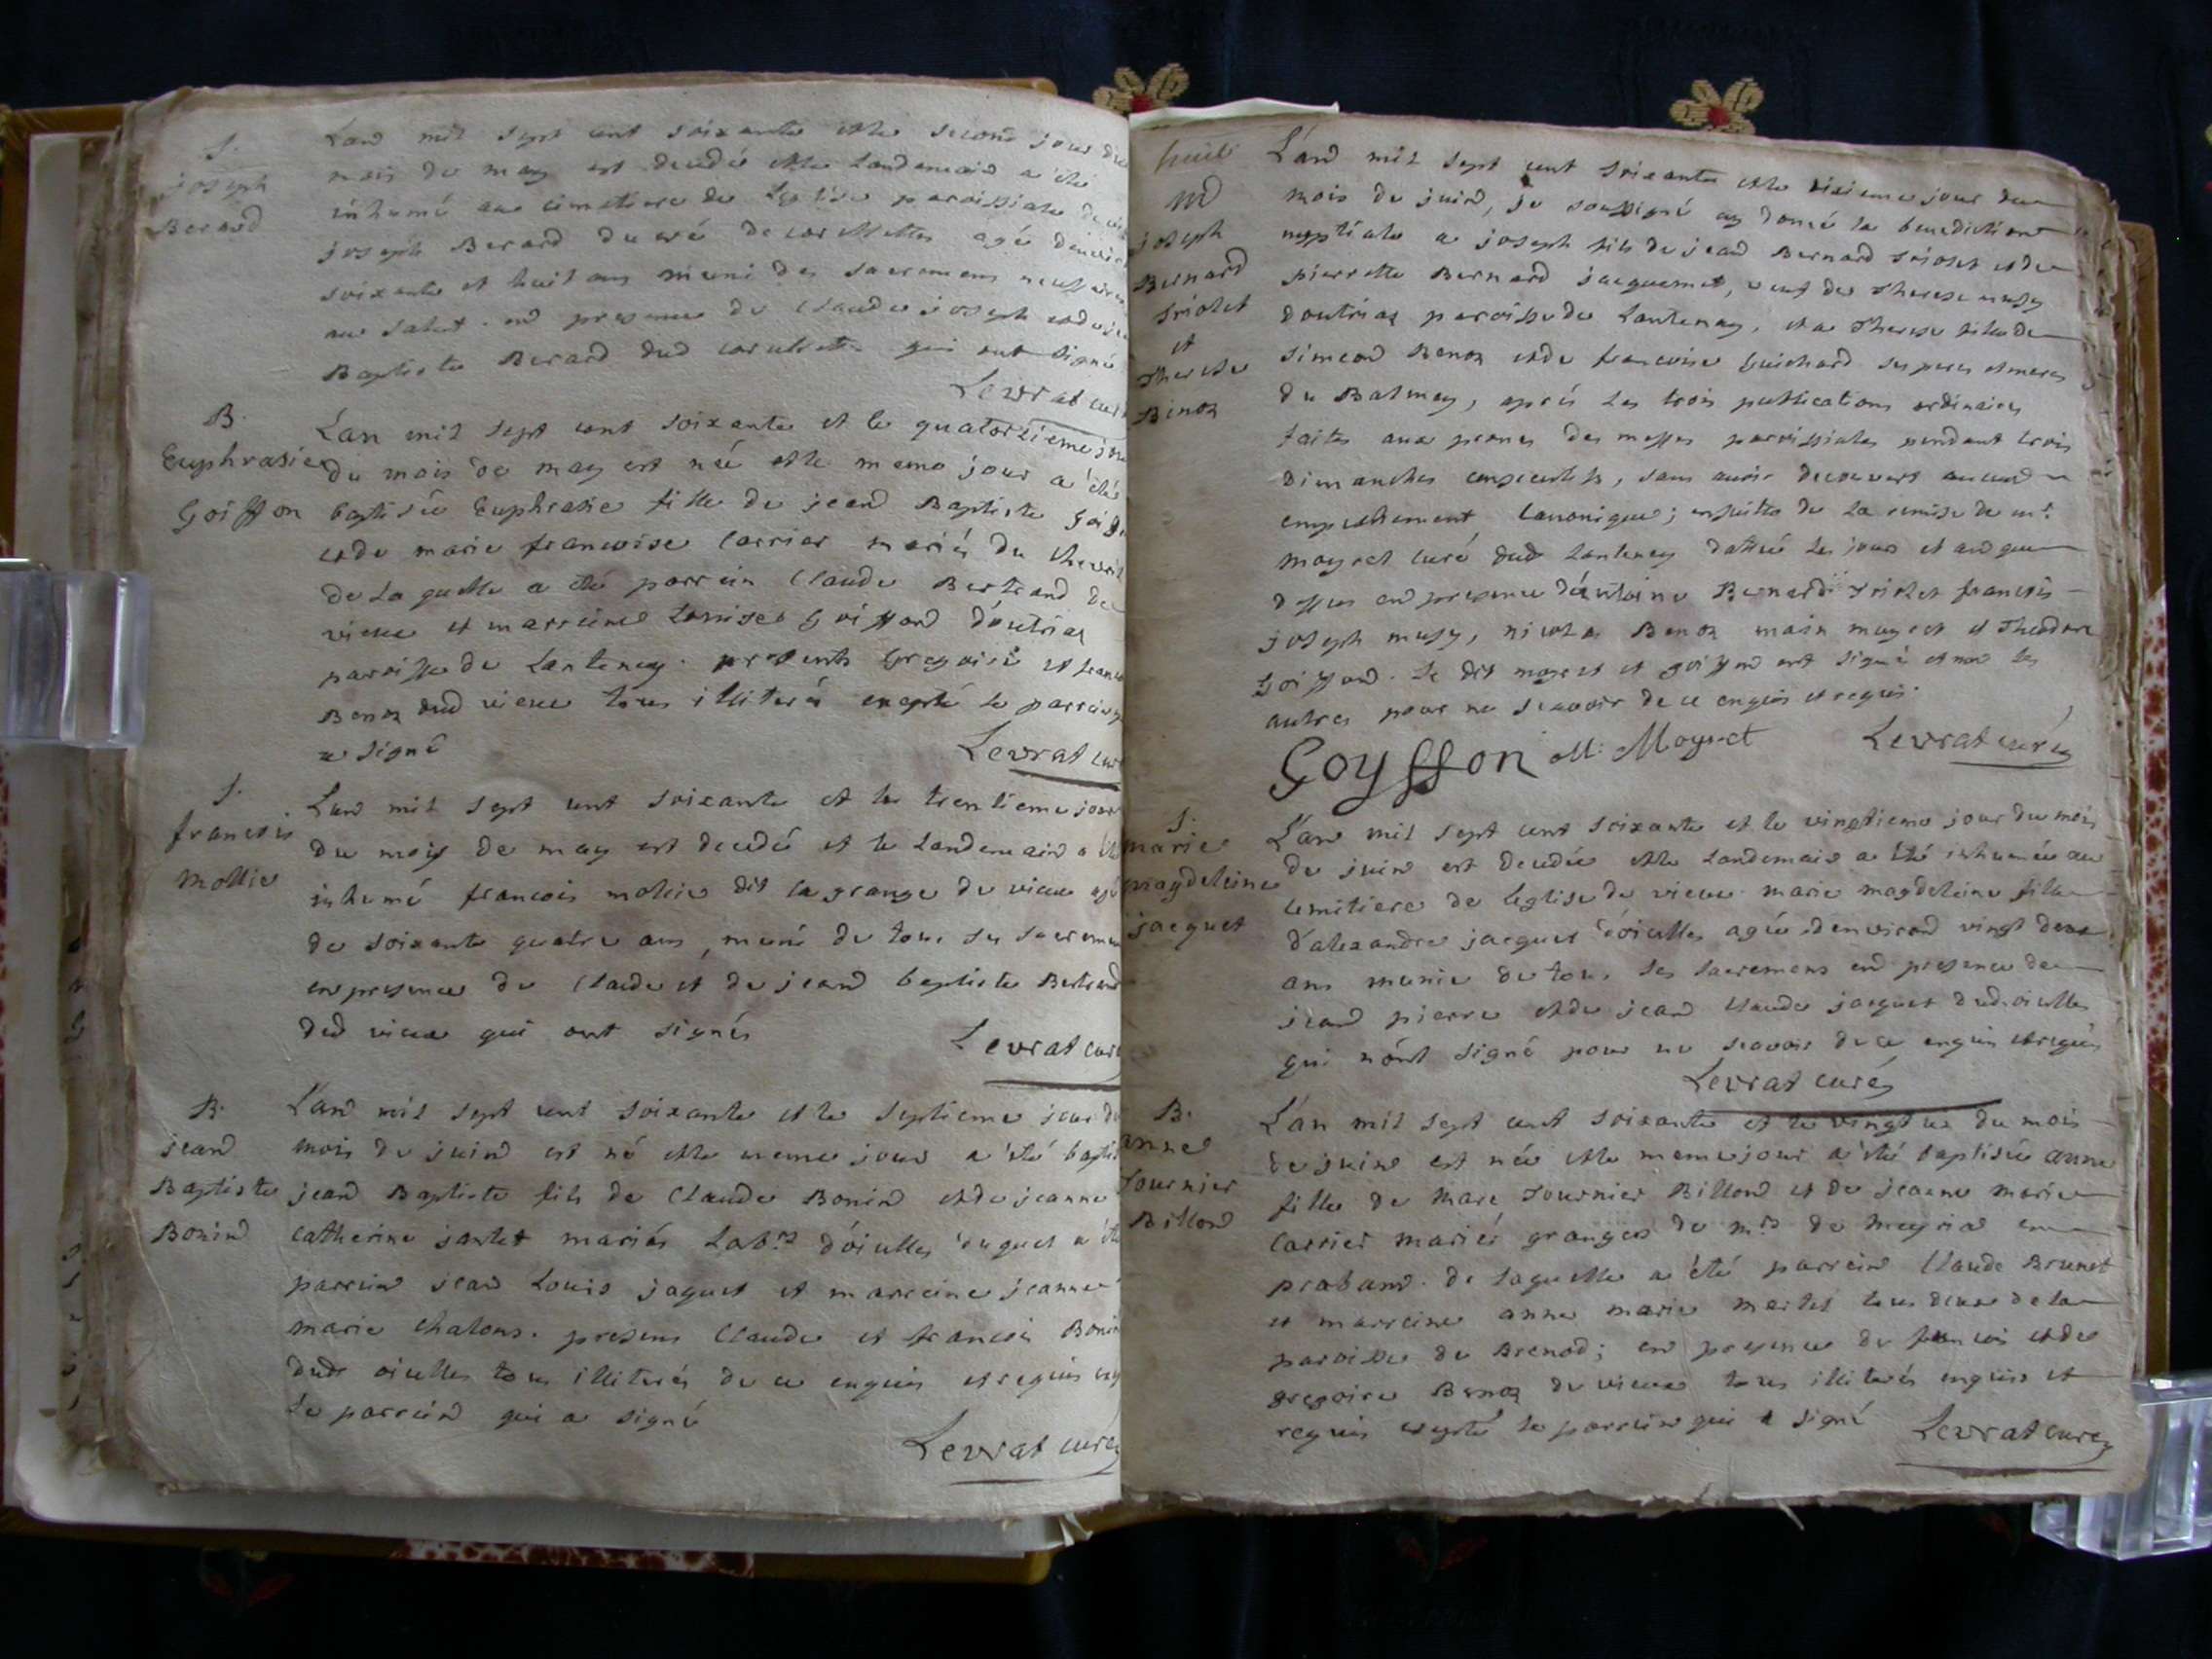 S.
joseph
Berard
Lan mil sept cent soixante et le second jour du
mois de may est decedé et le landemain a été
inhumé au cimetiere de Leglise paroissiale de
joseph Berard du de corcelettes agé
soixante et huit ans muni des sacremens necessaires
au salut. en presence de Claude joseph et de
Baptiste Berard dud corcelettes qui ont signé
Levrat curé
B.
Euphrasie
Goiffon
L'an mil sept cent soixante et le quatorzieme jour
du mois de may est née et le meme jour a été
baptisée Euphrasie fille de jean Baptiste
et de marie francoise Carrier mariés du
de la quelle a été parrein Claude Bertrand de
vieux et marreine Louise Goiffon d'outriaz
paroisse de Lantenay. presents Gregoire et
Benoz dud vieux tous illiterés excepté le parrein
a signé
Levrat curé
S.
francois
mollie
Lan mil sept cent soixante et le trentieme jour
du mois de may est decedé et le landemain a été
inhumé francois molie dit la grange de vieux agé
de soixante quatre ans, muni de tous ses sacremens
en presence de Claude et de jean baptiste Bertrand
dud vieux qui ont signés
Levrat curé
B.
jean
Baptiste
Bonin
L'an mil sept cent soixante et le septieme jour du
mois de juin est né et le meme jour a été
jean Baptiste fils de Claude Bonin et de jeanne
catherine jantet mariés Labrs d'oiselles duquel a été
parrein jean Louis jaquet et marreine jeanne
marie chatons. presens Claude et francois Bonin
dudt oiselles tous illiterés de ce enquis et requis
le parrein qui a signé
Levrat curé
m
joseph
Bernard
Triolet
et
Therese
Benoz
L'an mil sept cent soixante et le dixieme jour du
mois de juin, je soussigné ay donné la benediction
nuptiale a joseph fils de jean Bernard Triolet et de
pierrette Bernard jacquemet, veuf de Therese musy
d'outriaz paroisse de Lantenay, et a Therese fille de
simeon Benoz et de francoise Guichard ses peres et meres
du Balmay, après les trois publications ordinaires
faites aux prones des messes paroissiales pendant trois
dimanches consecutifs, sans avoir decouvert aucun
empechement Canonique; ensuitte de la remise de mr.
moyret curé dud Lantenay dattée les jour et an que
dessus en presence d'antoine Bernard Triolet francois
joseph musy, nicolas Benoz moyret et Theodore
Goiffon. Le dit moyret et goiffon ont signé et non les
autres pour ne scavoir de ce enquis et requis.
Goysson M. Moyret Levrat curé
S.
marie
magdeleine
jacquet
L'an mil sept cent soixante et le vingtieme jour du mois
de juin est decedée et le landemain a été inhumée au
cemitiere de leglise de vieux marie magdeleine fille
d'alexandre jacquet d'oiselles agée denviron vingt deux
ans munie de tous ses sacremens en presence de
jean pierre et de jean Claude jacquet dud. oiselles
qui n'ont signé pour ne scavoir de ce enquis et requis
Levrat curé
B.
anne
Tournier
Billon
L'an mil sept cent soixante et le vingt du mois
de juin est née et le meme jour a été baptisée anne
fille de Marc Tournier Billon et de jeanne marie
Carrier mariés grangers de mrs de meyria en
praban. de laquelle a été parrein Claude Brunet
et marreine anne marie martel tous deux de la
paroisse de Brenod; en presence de francois et de
gregoire Benoz de vieux tous illiterés enquis et
requis excepté le parrein qui a signé
Levrat curé